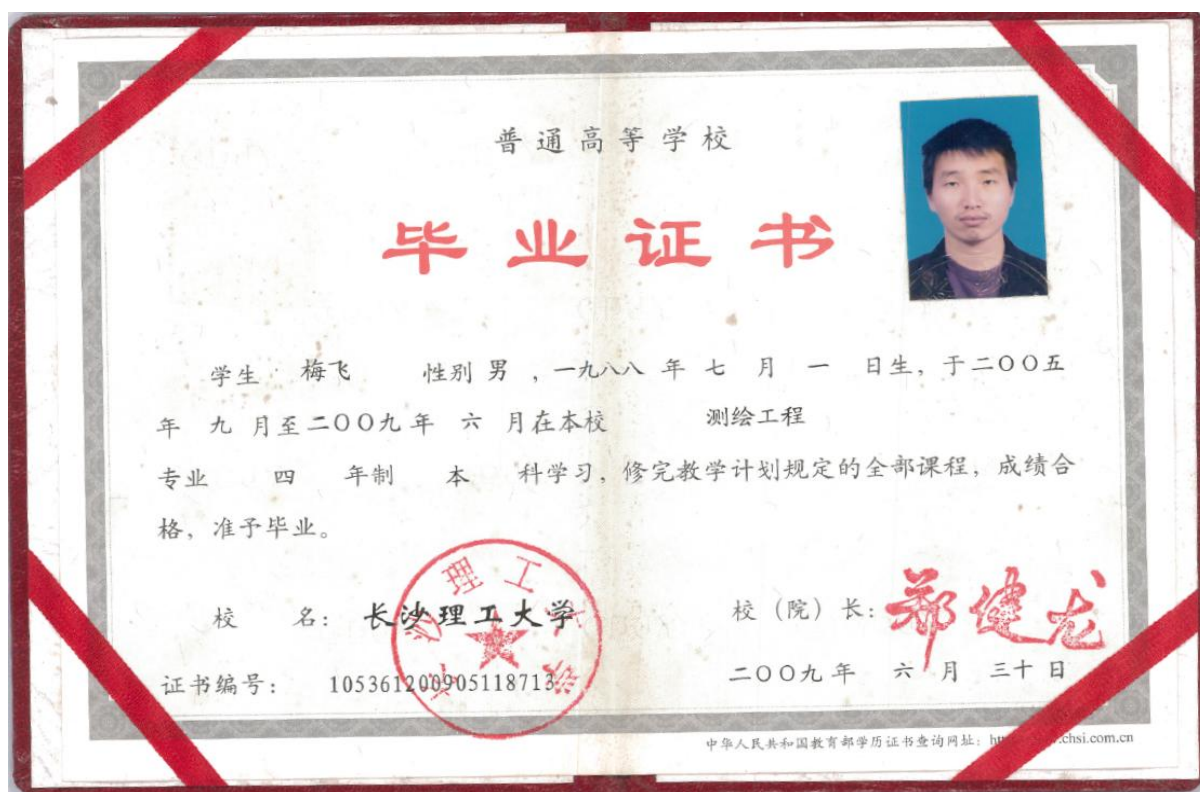 普通高等学校
毕业证书
学生 梅飞 性别 男 , 一九八八 年 七 月 一 日生, 于二〇〇五
年 九 月至二〇〇九年 六 月在本校 测绘工程
专业 四 年制 本 科学习, 修完教学计划规定的全部课程, 成绩合
格, 准予毕业。
长沙理工大学
校 名: 长沙理工大学
校（院）长: 郑健龙
证书编号: 105361200905118713
二〇〇九年 六 月 三十 日
中华人民共和国教育部学历证书查询网址: chsi.com.cn